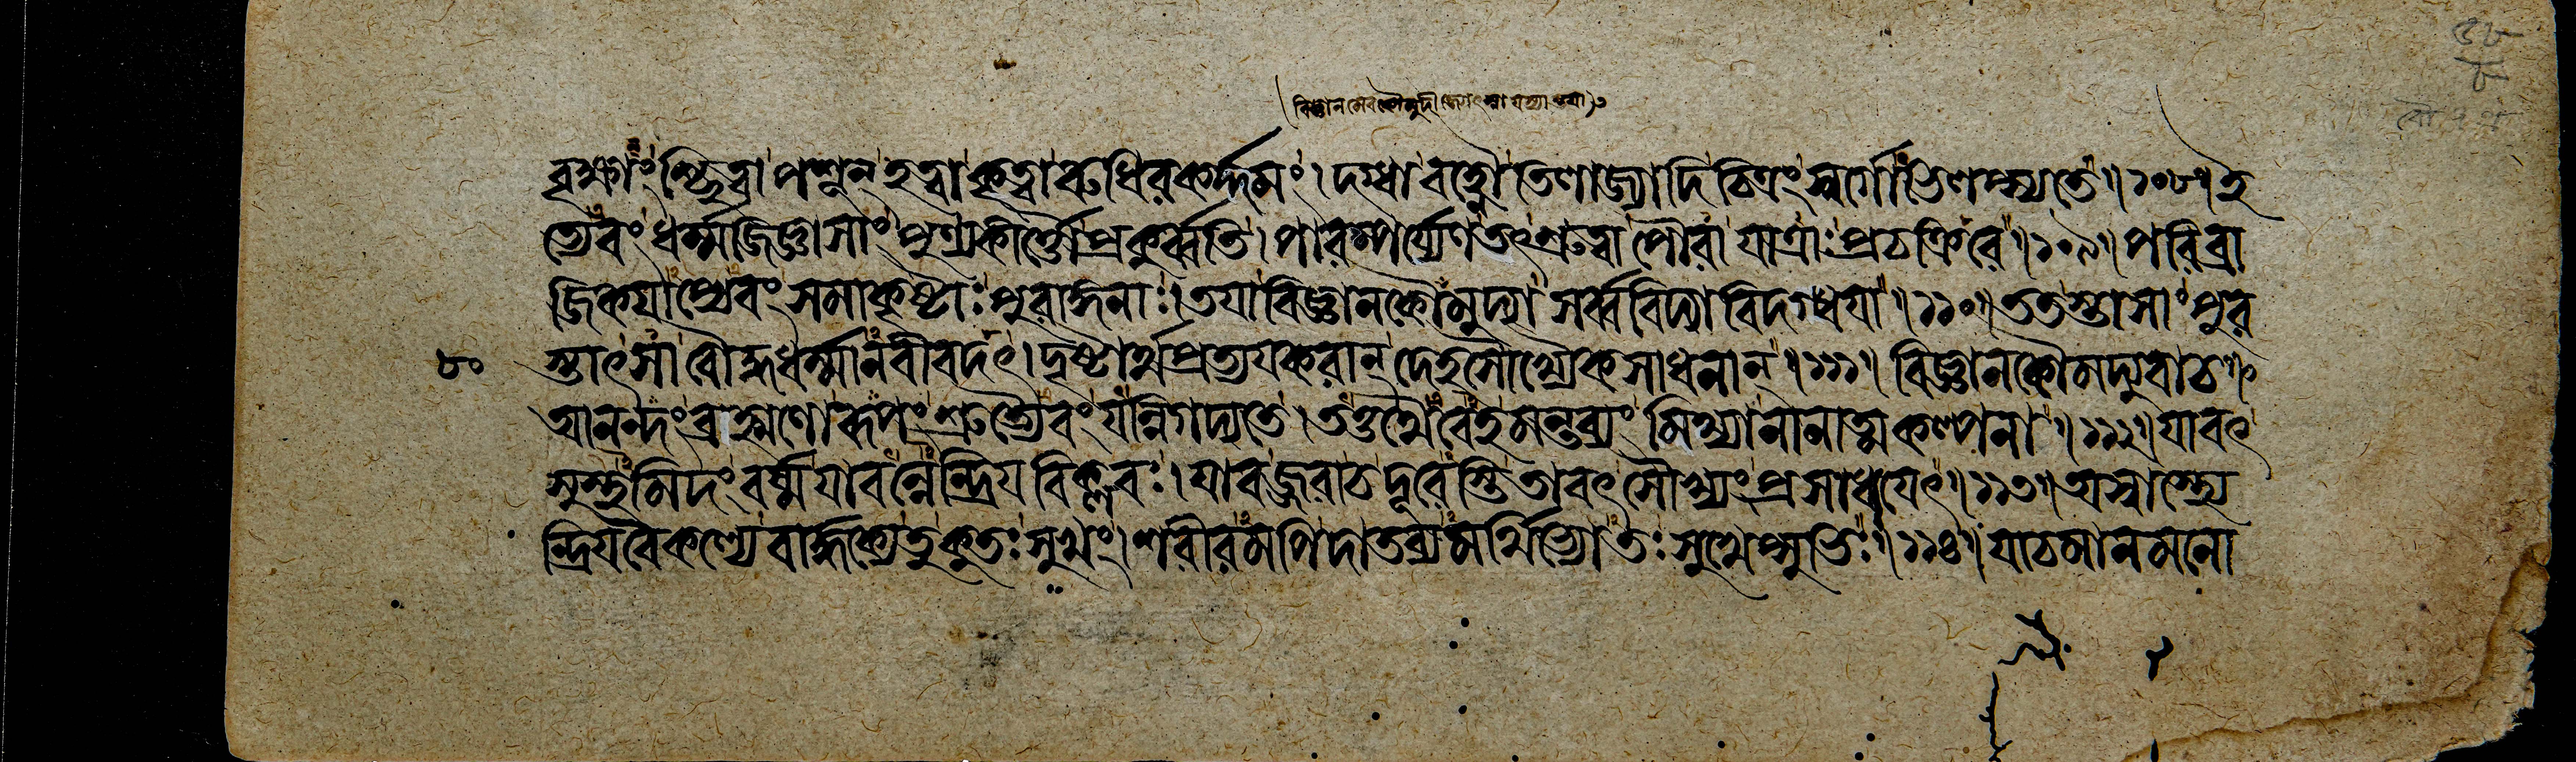 (বিজ্ঞানমেব কৌমুদী জ্যোৎস্না যস্যাস্তয়া) ৩
বৃক্ষাংশ্ছিত্বা পশূন্ হত্বা কৃত্বা রুধিরকর্দ্দমং। দগ্ধ্বা বহ্নৌ তিলাজ্যাদি চিত্রং স্বর্গোভিলষ্যতে॥১০৮॥ই
ত্যেবং ধর্ম্মজিজ্ঞাসাং পুণ্যকীর্ত্তৌ প্রকুর্ব্বতি। পারম্পর্য্যেণ তৎ শ্রুত্বা পৌরা যাত্রাং প্রচক্রিরে॥১০৯॥ পরিব্রা
জিকযাপ্যেবং সমাকৃষ্টাঃ পুরাঙ্গনাঃ। তযা বিজ্ঞানকৌমুদ্যা সর্ব্ববিদ্যাবিদগ্ধযা॥১১০॥ ততস্তাসাং পুর
৮০ স্তাৎ সা বৌদ্ধধর্ম্মানবীবদৎ। দৃষ্টার্থপ্রত্যযকরান্ দেহসৌখ্যৈকসাধনান্॥১১১॥ বিজ্ঞানকৌমদ্যুবাচ॥
আনন্দং ব্রহ্মণো রূপং শ্রুত্যৈবং যন্নিগদ্যতে। তত্তথৈবেহ মন্তব্যং মিথ্যা নানাত্মকল্পনা॥১১২॥ যাবৎ
সুস্থমিদং বর্ষ্ম যাবন্নেন্দ্রিযবিক্লবঃ। যাবজ্জরা চ দূরেস্তি তাবৎ সৌখ্যং প্রসাধযেৎ॥১১৩॥ অস্বাস্থ্যে
ন্দ্রিযবৈকল্যে বার্দ্ধক্যে তু কুতঃ সুখং। শরীরমপি দাতব্যমর্থিভ্যোতঃ সুখেপ্সুভিঃ॥১১৪॥ যাচমানমনো